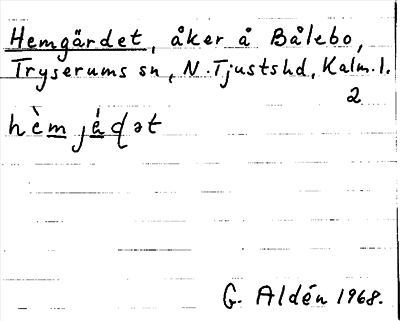 Hemgärdet, åker å Bålebo,
Tryserums sn, N. Tjustshd, Kalm. l.
2
hè̱mjá̱dət
G. Aldén 1968.